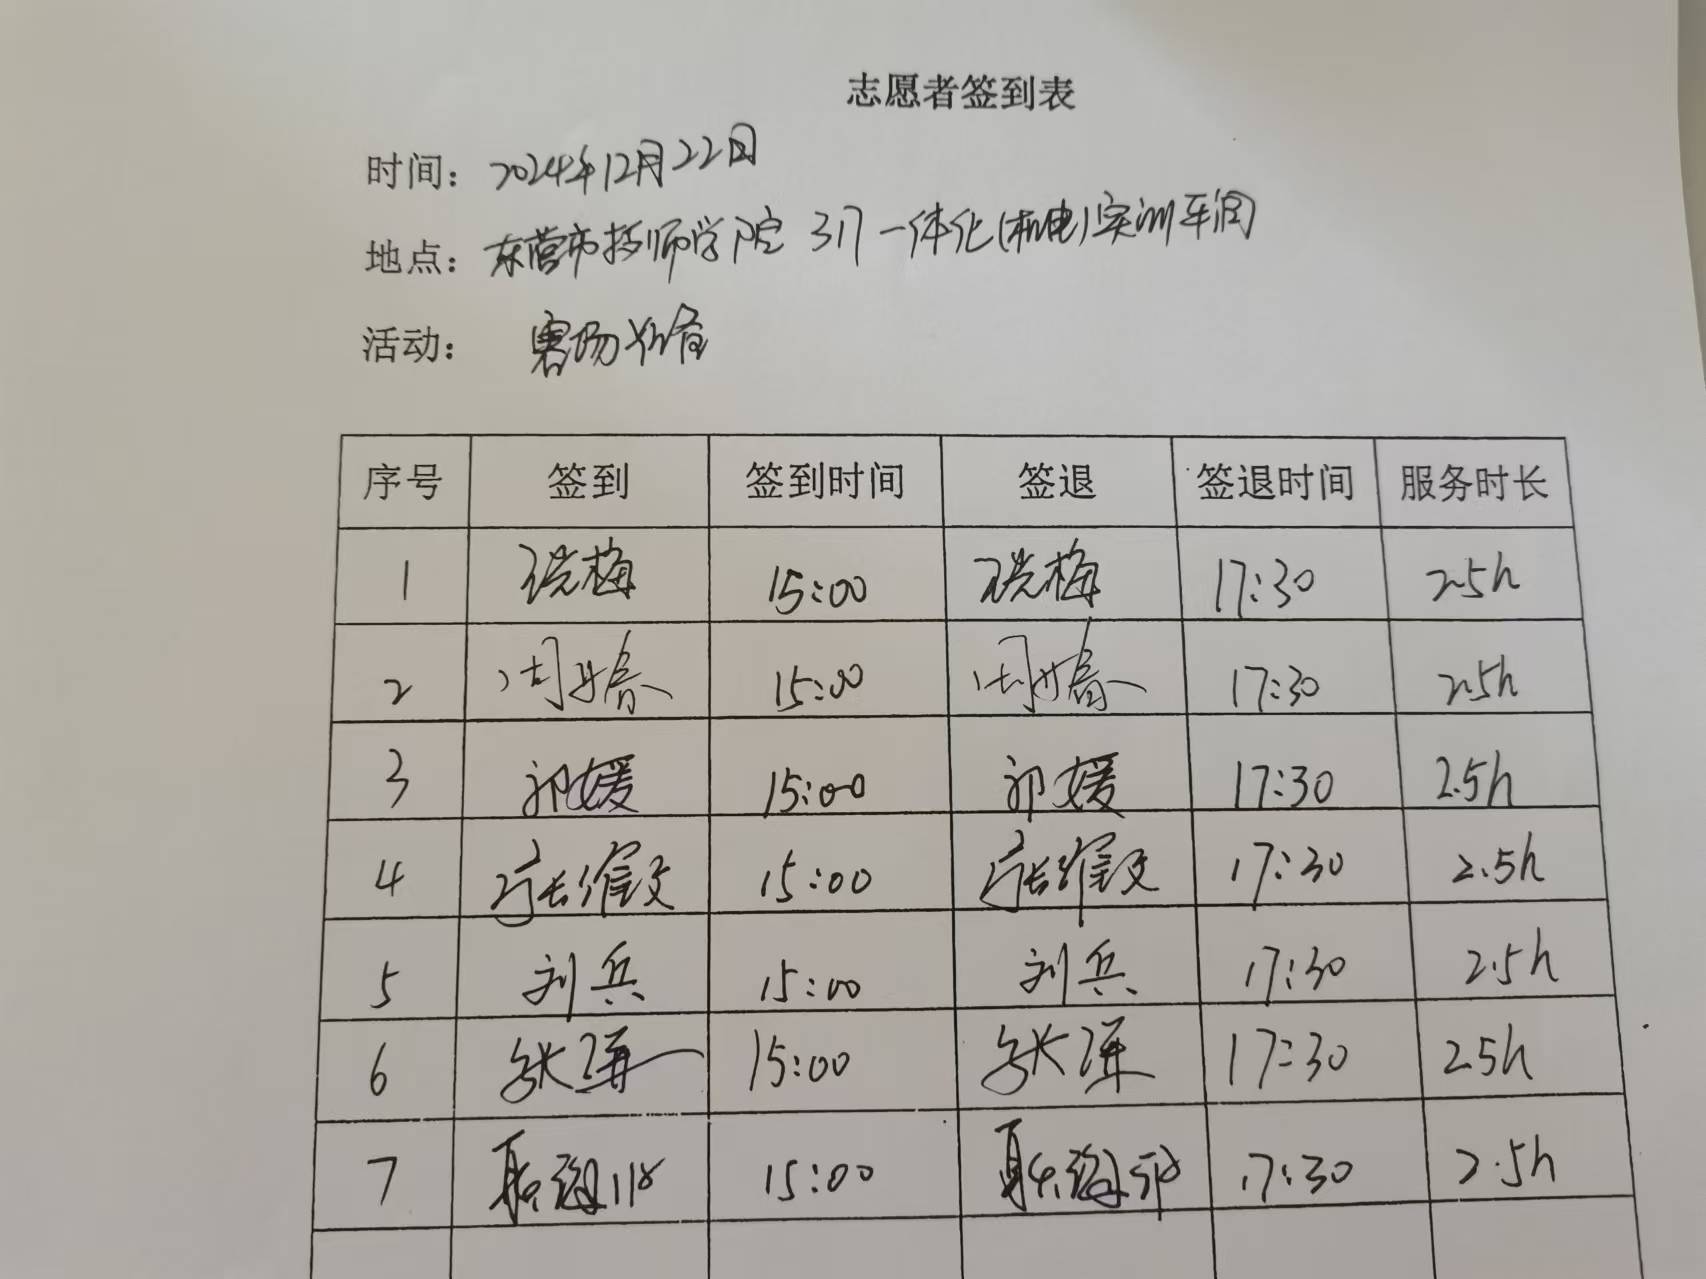 志愿者签到表
时间: 2024年12月22日
地点: 东营市技师学院 317一体化(机电)实训车间
活动: 赛场
序号 签到 签到时间 签退 签退时间 服务时长
1 15:00 17:30 2.5h
2 15:00 17:30 2.5h
3 郭媛 15:00 郭媛 17:30 2.5h
4 15:00 17:30 2.5h
5 刘兵 15:00 刘兵 17:30 2.5h
6 15:00 17:30 2.5h
7 15:00 17:30 2.5h